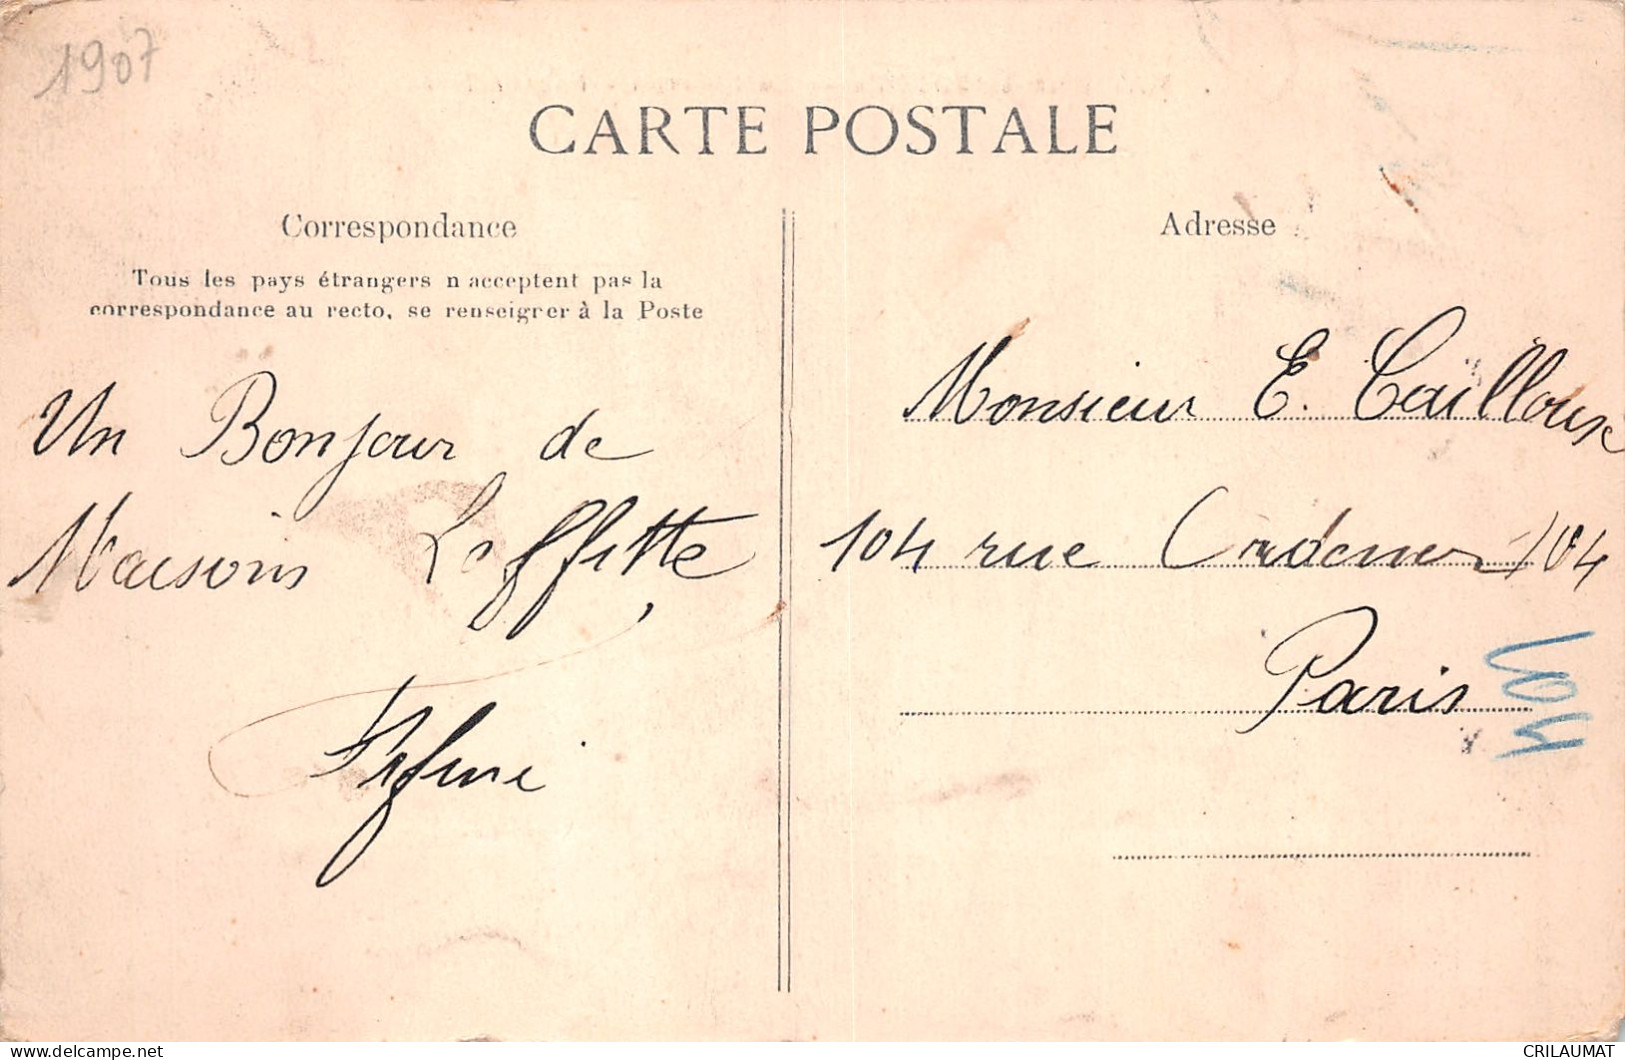 1907
CARTE POSTALE
Correspondance
Tous les pays étrangers n acceptent pas la
correspondance au recto, se renseigner à la Poste
Un Bonjour de
Maisons Laffitte
Adresse
Monsieur E. Cailloux
104 rue 104
Paris
104
CRILAUMAT